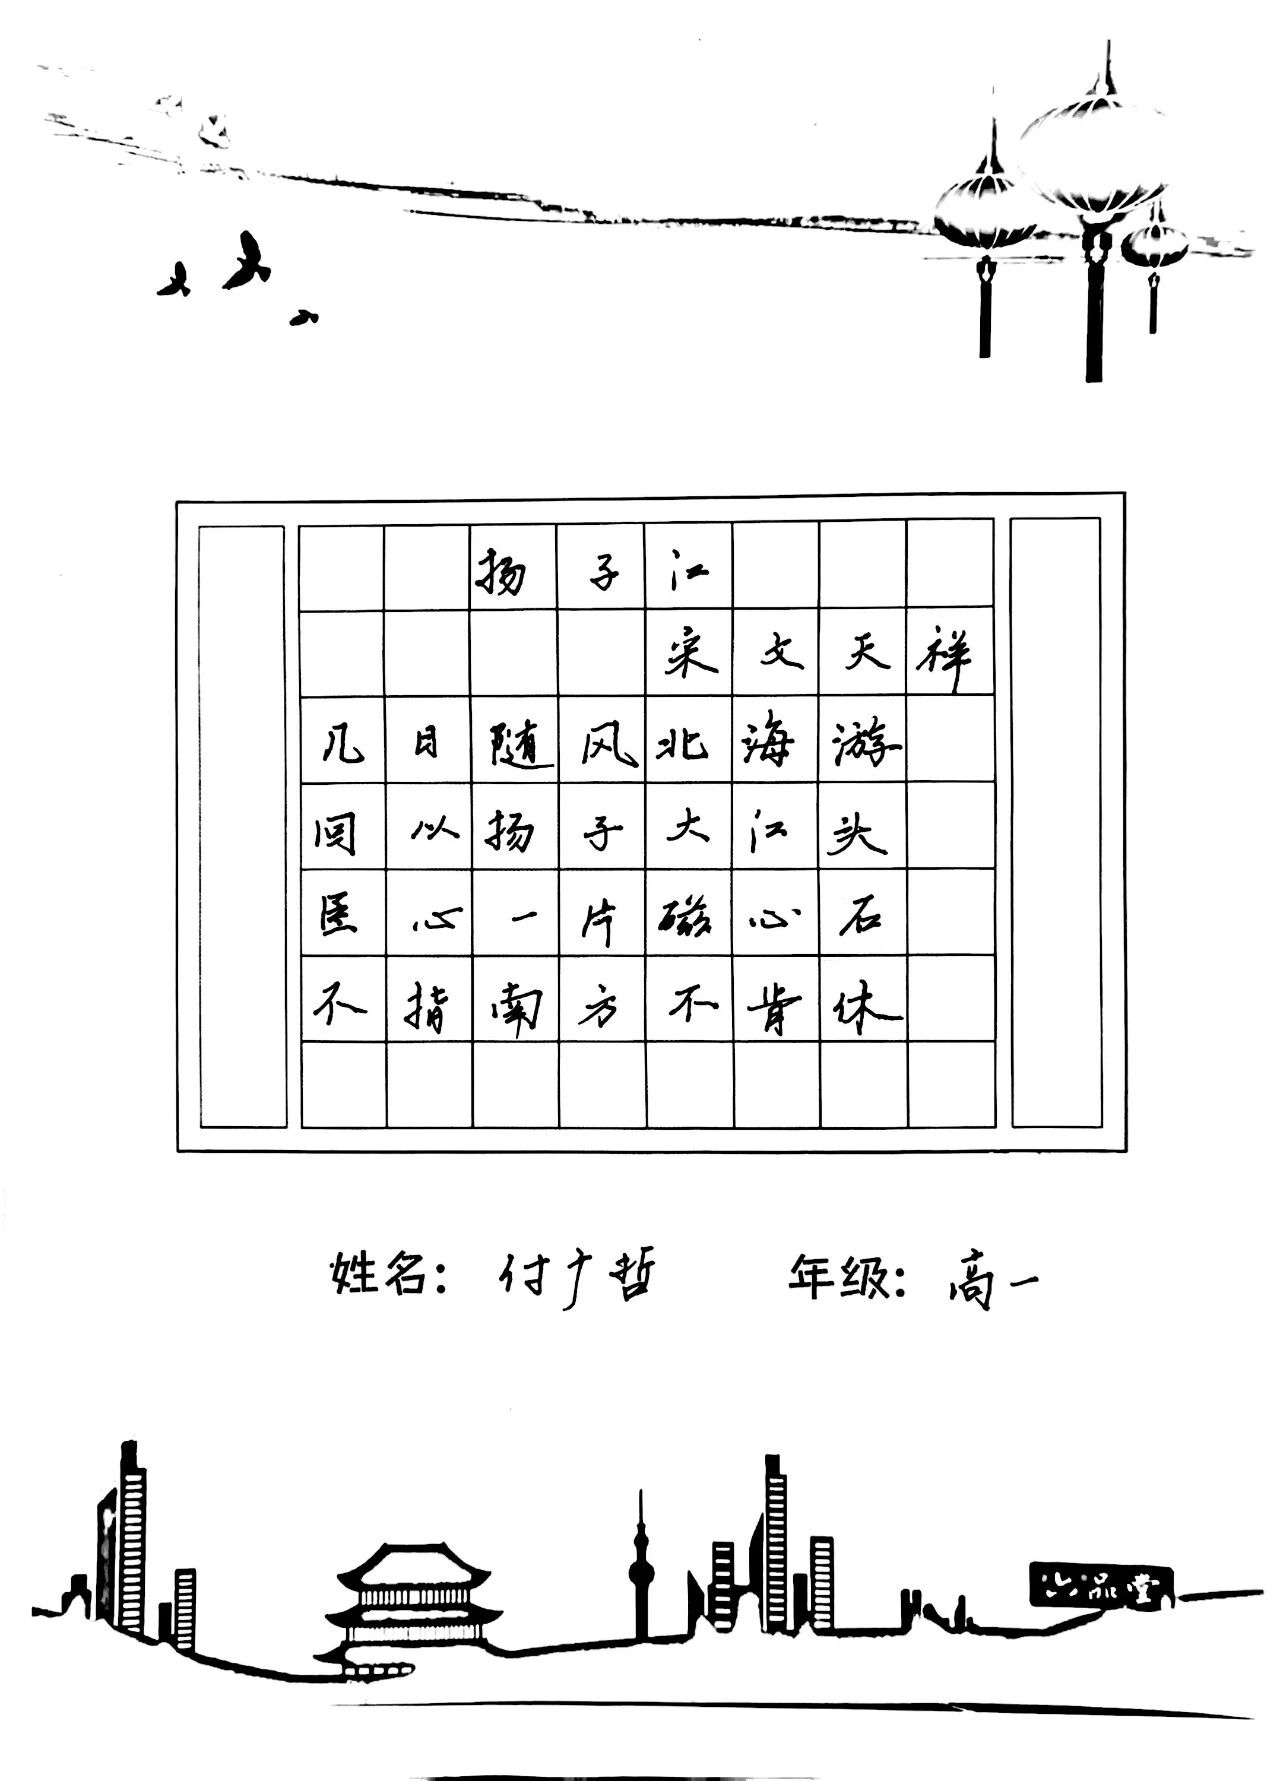 扬子江
宋文天祥
几日随风北海游
回以扬子大江头
臣心一片磁心石
不指南方不肯休
姓名：付广哲 年级：高一